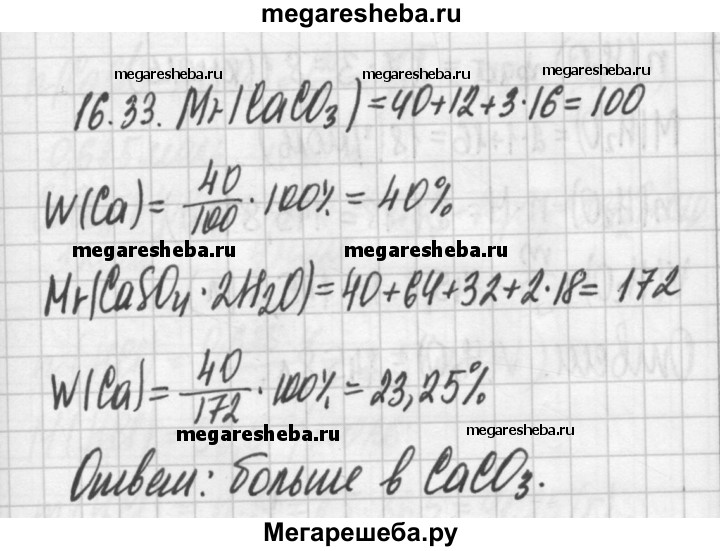 megaresheba.ru
megaresheba.ru megaresheba.ru megaresheba.ru
16.33. Mr(CaCO₃)=40+12+3·16=100
W(Ca)= 40/100 ·100%= 40%
megaresheba.ru megaresheba.ru
Mr(CaSO₄·2H₂O)=40+64+32+2·18= 172
W(Ca)= 40/172 ·100%=23,25%
megaresheba.ru megaresheba.ru
Ответ: больше в CaCO₃.
Мегарешеба.ру